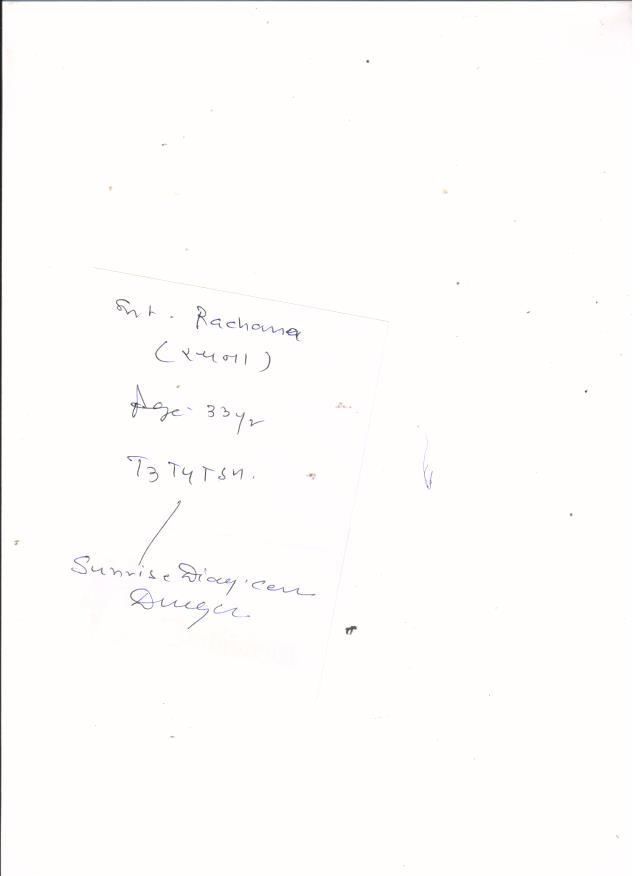 Smt. Rachana
Age- 33yr
T3 T4 TSH.
Sunrise Diag. cen